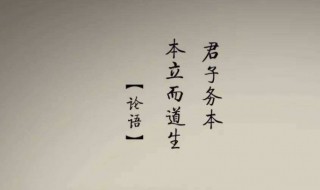 君子务本
本立而道生
【论语】